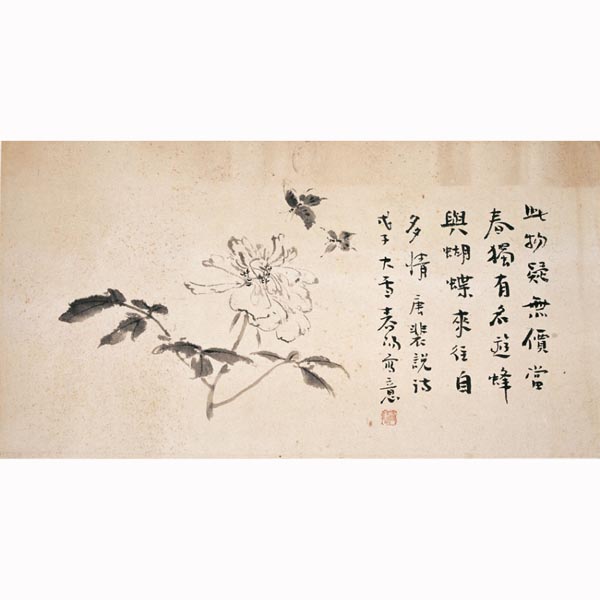 此物疑無價當
春獨有名遊蜂
與蝴蝶來往自
多情 唐裴說詩
戊子大雪春 寫意